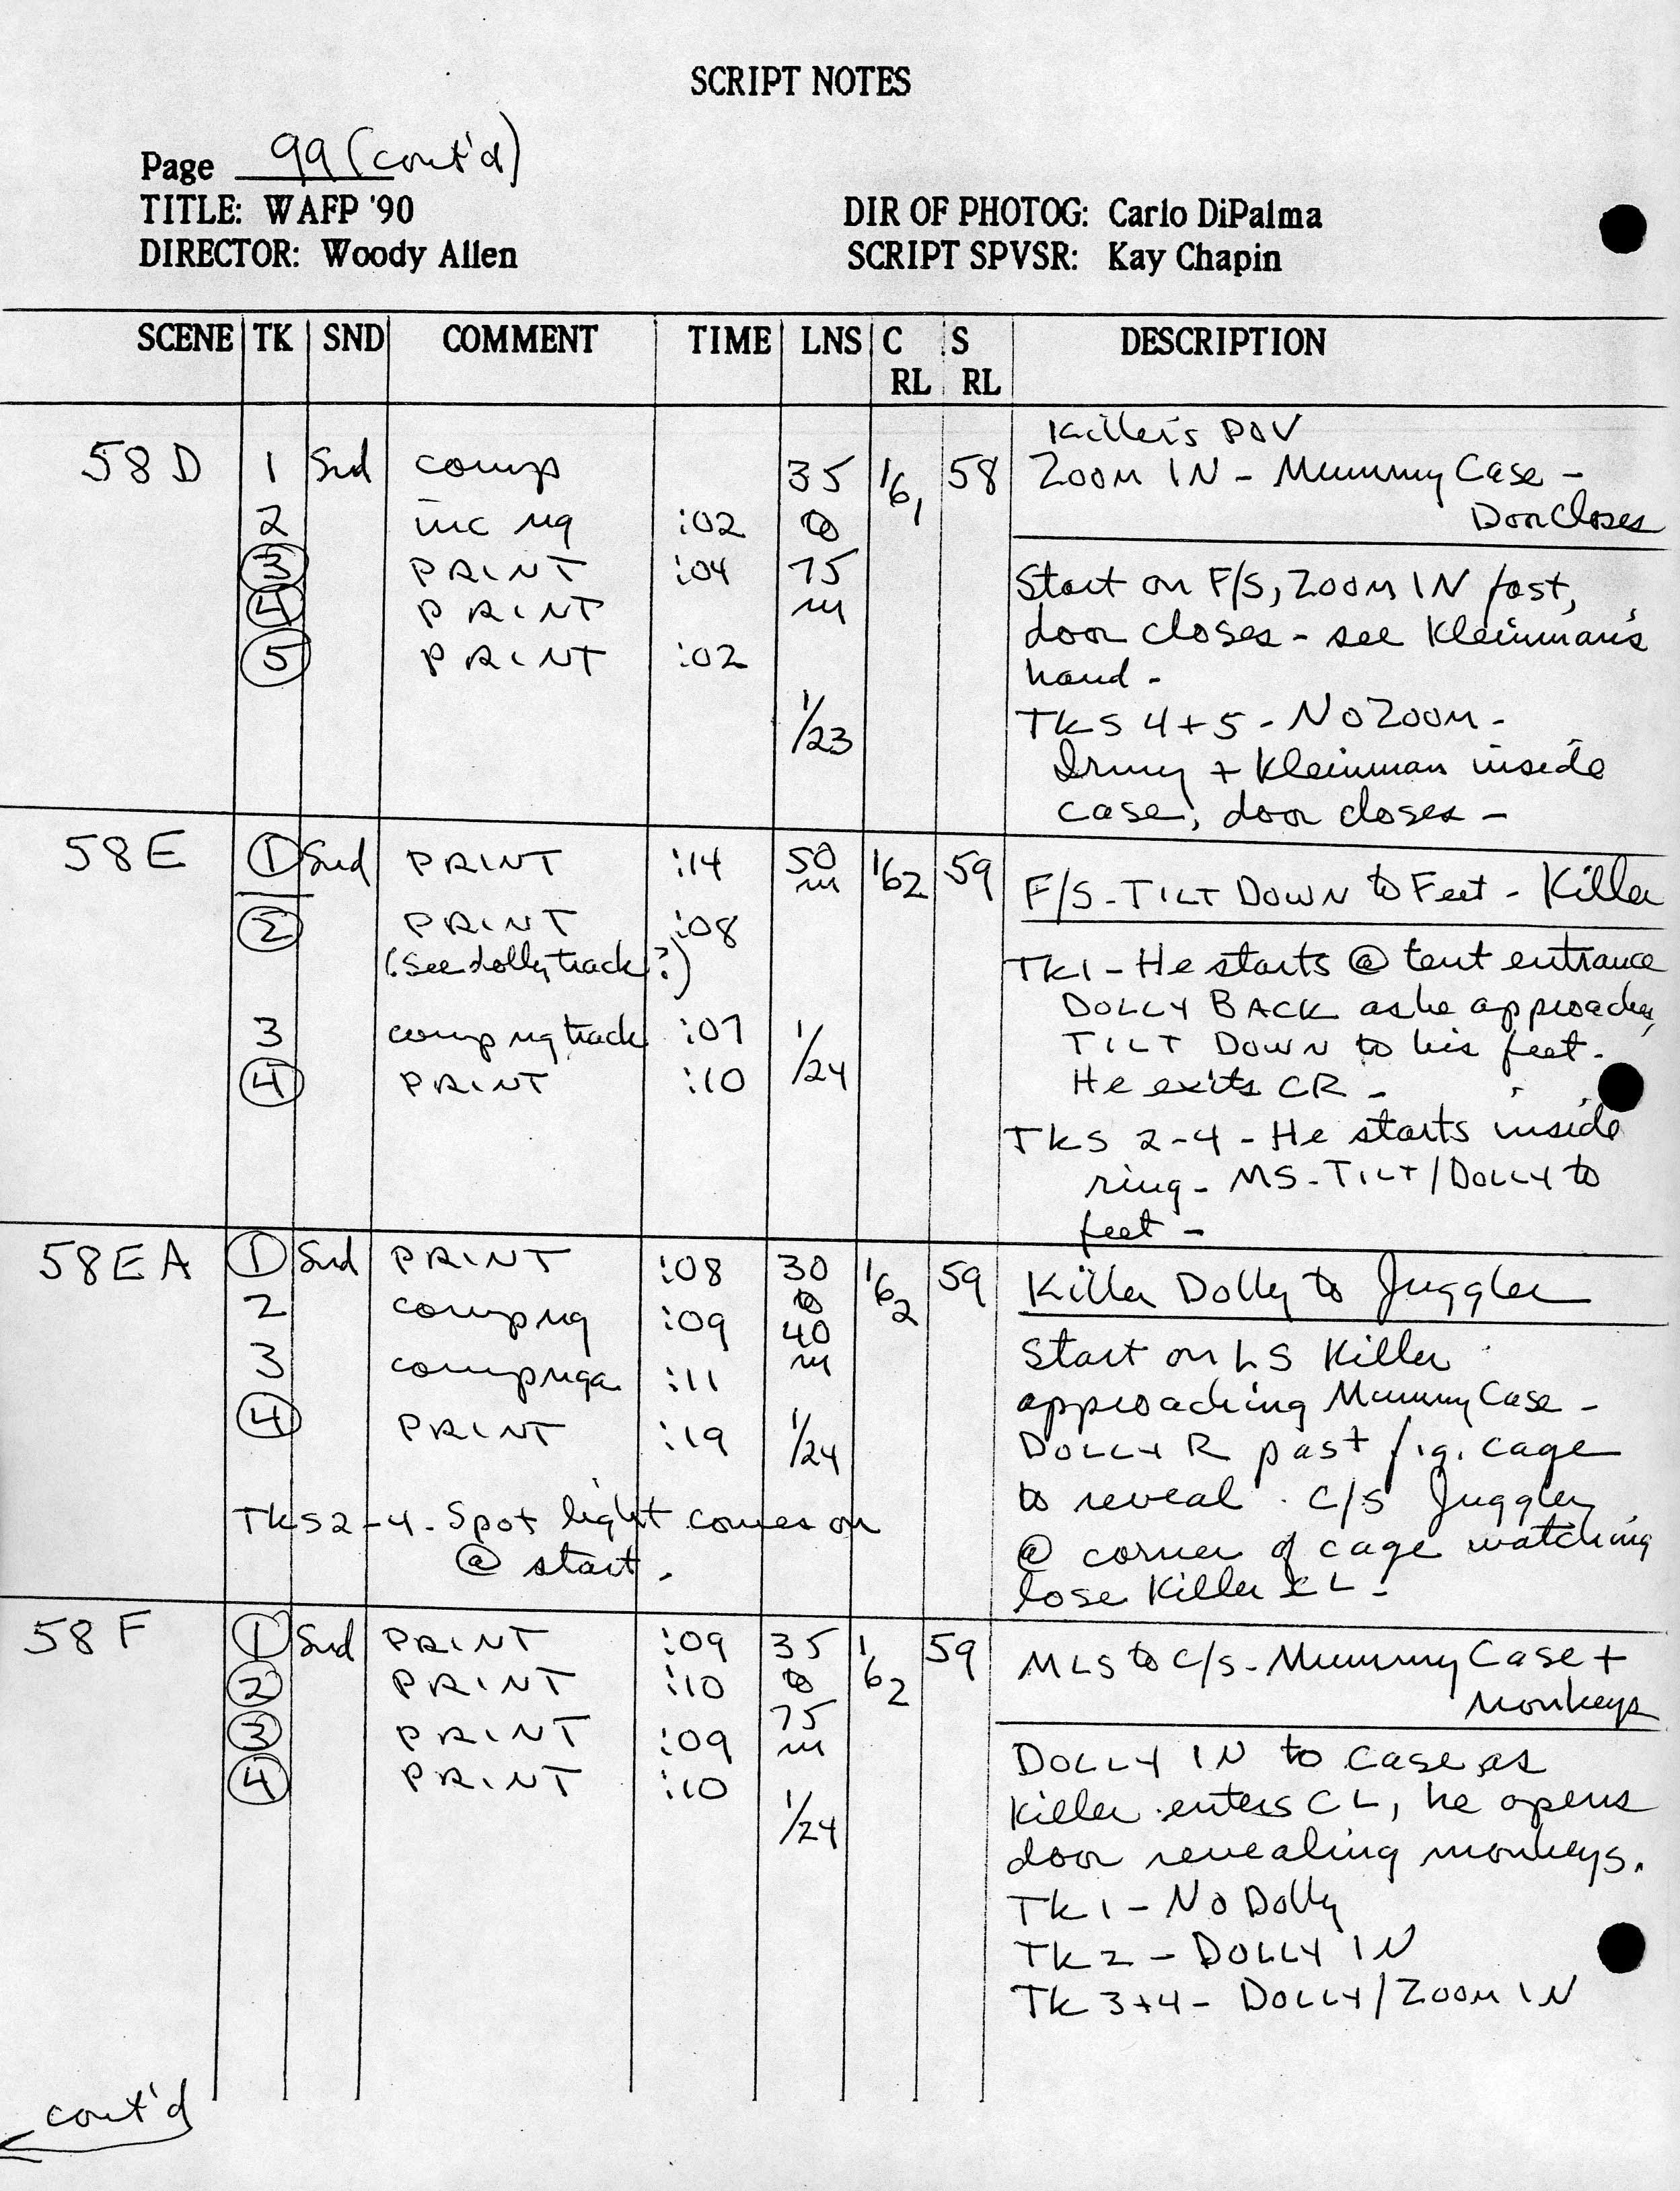 SCRIPT NOTES
Page 99 (cont'd)
TITLE: WAFP '90
DIRECTOR: Woody Allen
DIR OF PHOTOG: Carlo DiPalma
SCRIPT SPVSR: Kay Chapin
SCENE TK SND COMMENT TIME LNS C RL S RL DESCRIPTION
58D 1 Snd comp 35 161 58
2 inc ng :02 to
3 PRINT :04 75
4 PRINT m
5 PRINT :02
1/23
Killer's POV
ZOOM IN - Mummy Case -
Door Closes
Start on F/S, ZOOM IN fast,
door closes - see Kleinman's
hand -
TKS 4+5 - No ZOOM -
Irmy + Kleinman inside
case, door closes -
58E 1 Snd PRINT :14 50 m 162 59
2 PRINT :08
(See dolly track?)
3 comp ng track :07
4 PRINT :10 1/24
F/S - TILT DOWN to Feet - Killer
TK1 - He starts @ tent entrance
DOLLY BACK as he approaches,
TILT DOWN to his feet -
He exits CR -
TKS 2-4 - He starts inside
ring - MS - TILT/DOLLY to
feet -
58EA 1 Snd PRINT :08 30 162 59
2 comp ng :09 to 40
3 comp nga :11 m
4 PRINT :19 1/24
TKS 2-4 - Spot light comes on
@ start.
Killer Dolly to Juggler
Start on LS Killer
approaching Mummy Case -
DOLLY R past f.g. cage
to reveal C/S Juggler
@ corner of cage watching
lose Killer CL -
58F 1 Snd PRINT :09 35 162 59
2 PRINT :10 to 75
3 PRINT :09 m
4 PRINT :10
1/24
MLS to C/S - Mummy Case +
Monkeys
DOLLY IN to Case as
Killer enters CL, he opens
door revealing monkeys.
TK 1 - No Dolly
TK 2 - DOLLY IN
TK 3+4 - DOLLY/ZOOM IN
cont'd